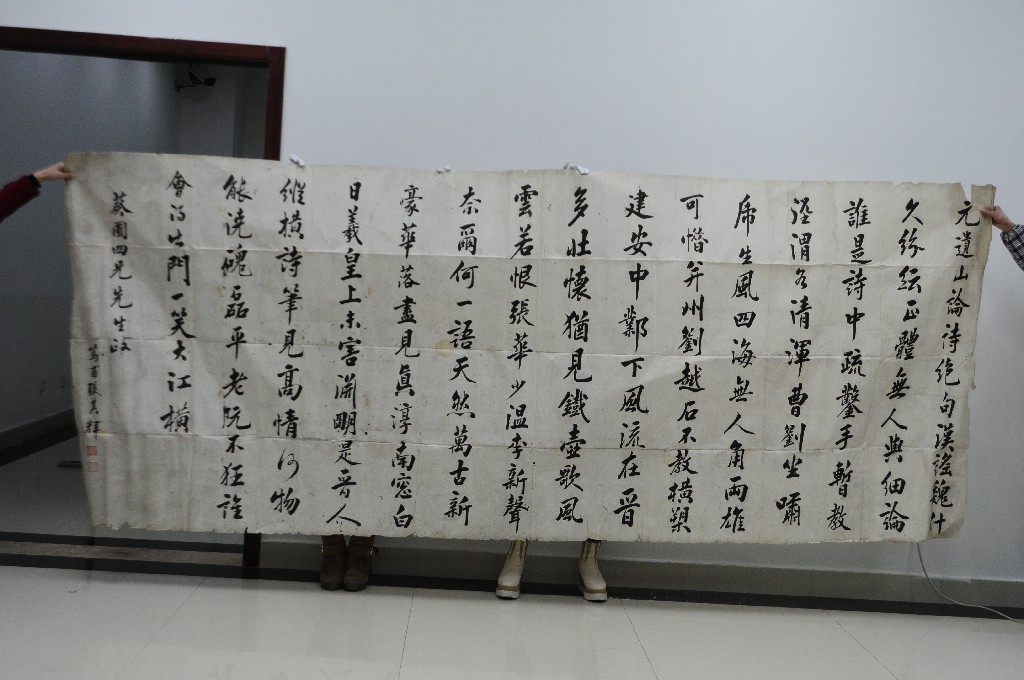 元遺山論詩絕句漢謠魏什
久紛紜正體無人與細論
誰是詩中疏鑿手暫教
涇渭各清渾曹劉坐嘯
虎生風四海無人角兩雄
可惜并州劉越石不教橫槊
建安中鄴下風流在晉
多壯懷猶見鐵壺歌風
雲若恨張華少溫李新聲
奈爾何一語天然萬古新
豪華落盡見真淳南窗白
日羲皇上未害淵明是晉人
縱橫詩筆見高情何物
能澆磈磊平老阮不狂誰
會得出門一笑大江橫
葵園四兄先生政